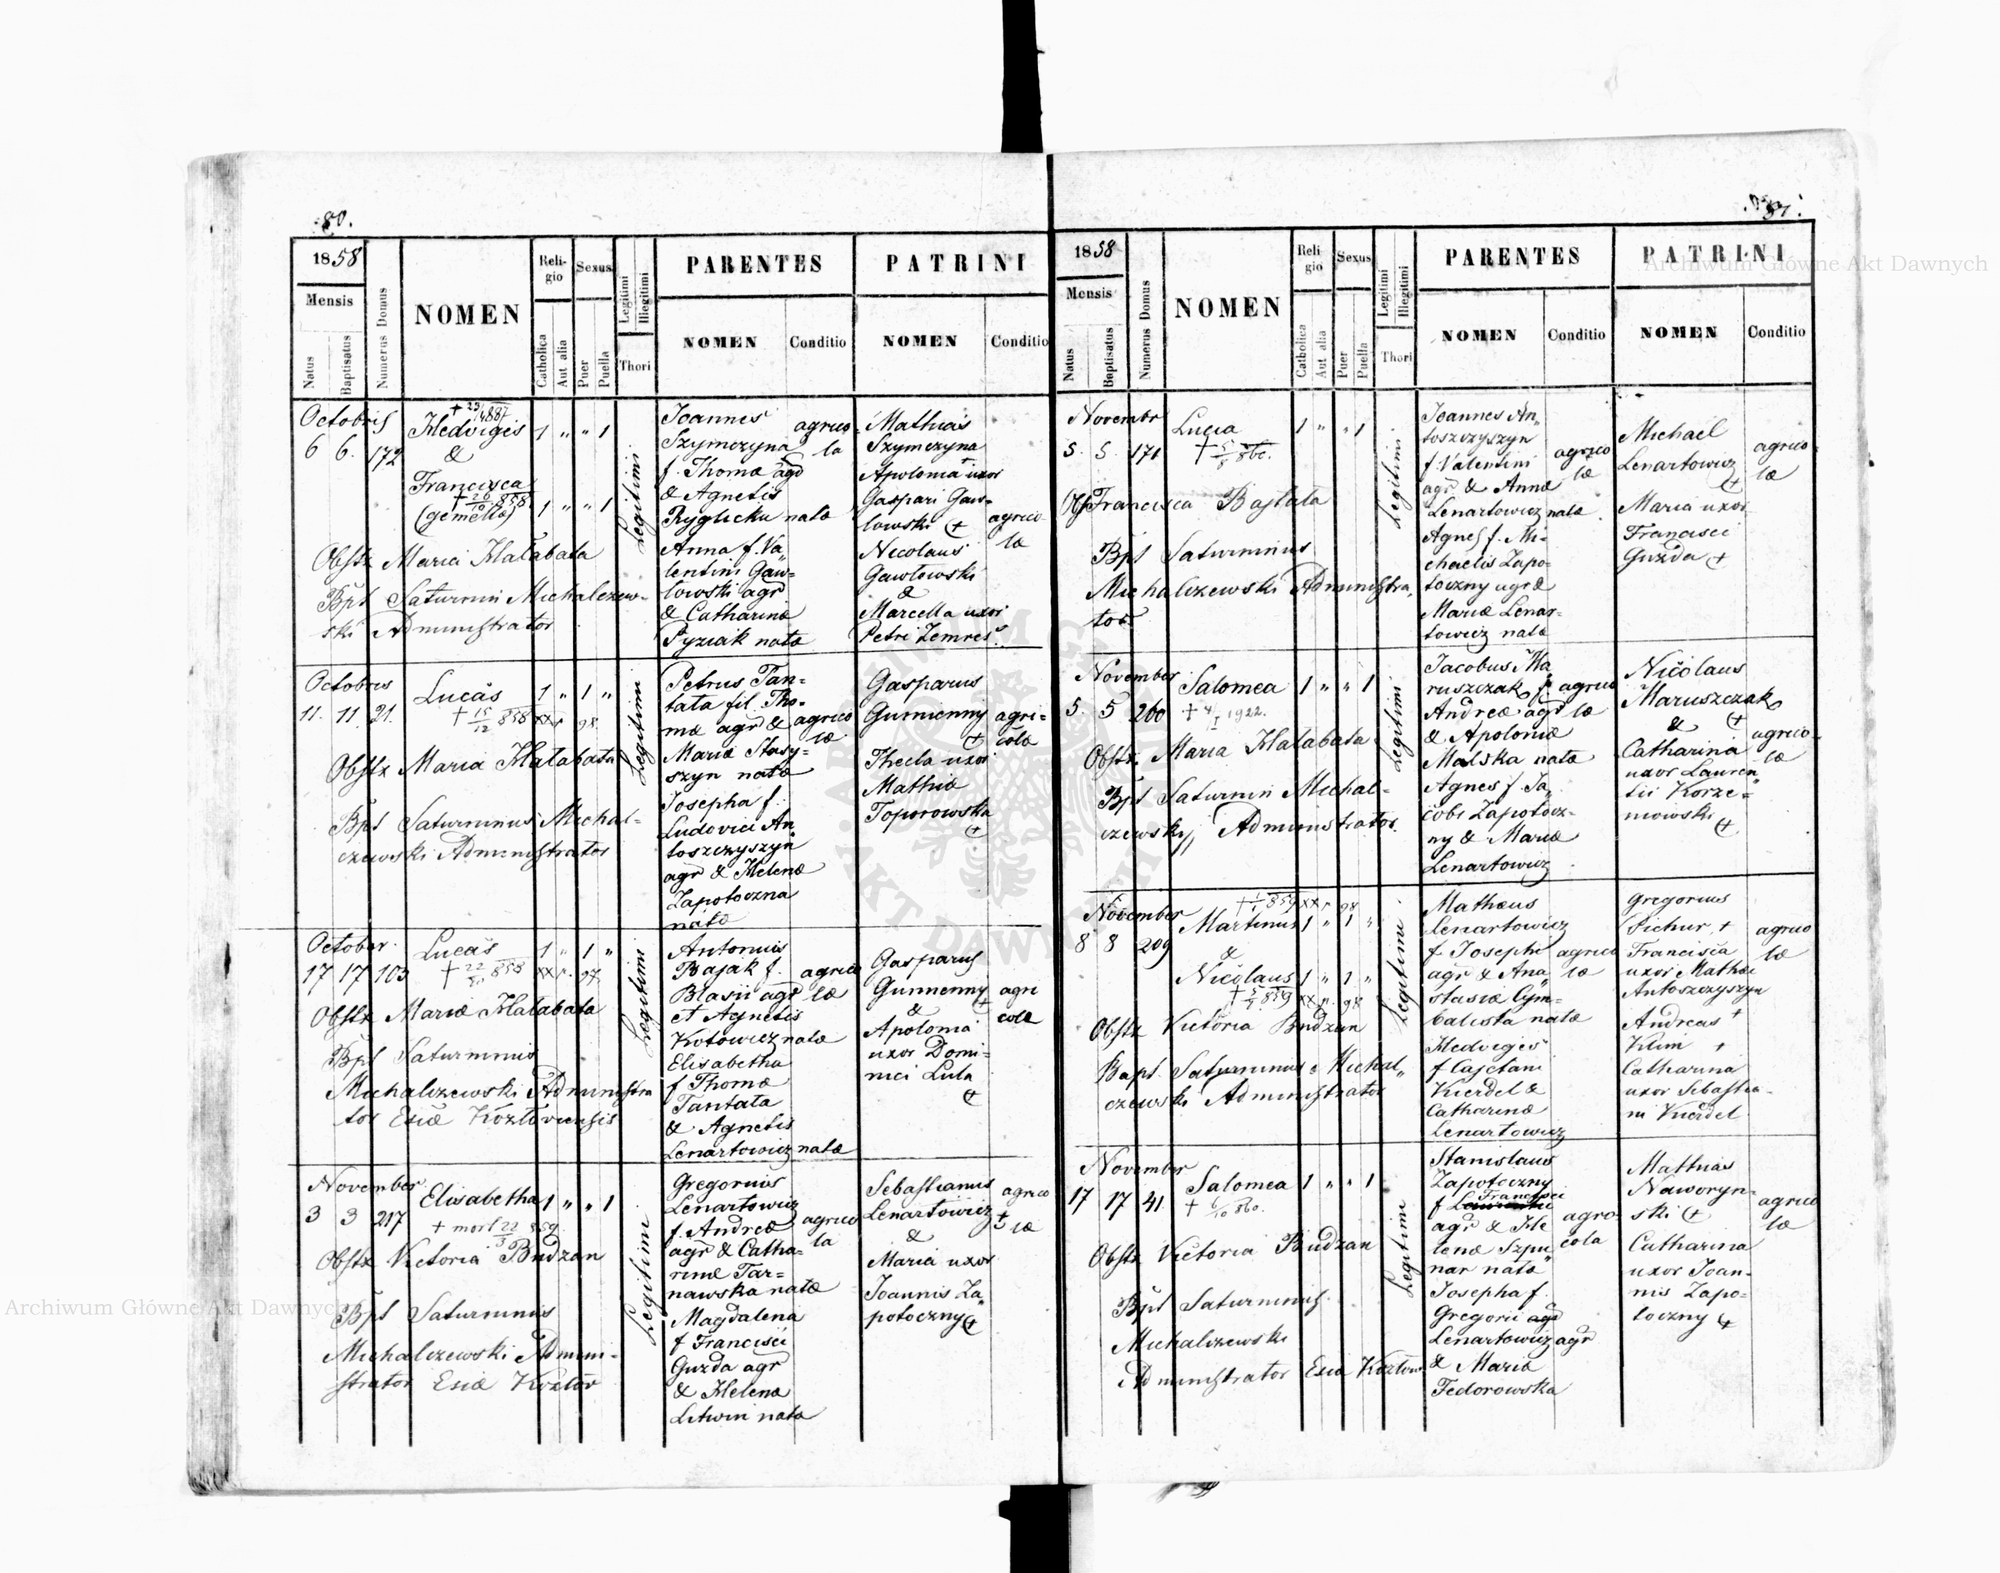 80.
1858
Mensis
Natus
Baptisatus
Numerus Domus
NOMEN
Reli-
gio
Catholica
Aut alia
Sexus
Puer
Puella
Legitimi
Illegitimi
Thori
PARENTES
NOMEN
Conditio
PATRINI
NOMEN
Conditio
Octobris
6 6. 172
Hedvigis
&
Francisca
(gemellæ)
1 " " 1
1 " " 1
Legitimi
Obstx Maria Hałabata
Bpt Saturnin Michalczew-
ski Administrator
Joannes
Szymczyna
f. Thomæ agr
& Agnetis
Ryglicku natæ
Anna f. Va
lentini Gaw-
lowski agr
& Catharinæ
Pyziak natæ
agrico
la
Mathias
Szymczyna
Apolonia uxor
Gaspari Gaw-
lowski +
Nicolaus
Gawlowski
&
Marcella uxor
Petri Zemres
agrico
læ
Octobris
11. 11 21.
Lucas
+ 15/12 858
1 " 1 "
Legitimi
Obstx Maria Hałabata
Bpt Saturninus Michal-
czewski Administrator
Petrus Tan-
tata fil. Tho-
mæ agr &
Mariæ Stasy-
szyn natæ
Josepha f.
Ludovici An
toszczyszyn
agr & Helenæ
Zapotoczna
natæ
agrico
læ
Gasparus
Gumienny
+
Thecla uxor
Mathiæ
Toporowska
+
agri-
colæ
October
17 17 103
Lucas
1 " 1 "
Legitimi
Obstx Mariæ Hałabata
Bpt Saturninus
Michalczewski Administra
tor Eciæ Kozłoviensis
Antonius
Bajak f.
Blasii agr
et Agnetis
Kotowicz natæ
Elisabetha
f Thomæ
Tantata
& Agnetis
Lenartowicz natæ
agrico
læ
Gasparus
Gumienny
&
Apolonia
uxor Domi-
nici Lula
+
agri
colæ
November
3 3 217
Elisabetha
1 " " 1
Legitimi
Obstx Victoria Budzan
Bpt Saturninus
Michalczewski Admini-
strator Eciæ Kozłow
Gregorius
Lenartowicz
f. Andreæ
agr & Catha-
rinæ Tar-
nawska natæ
Magdalena
f Francisci
Guzda agr
& Helenæ
Litwin nata
agrico
la
Sebastianus
Lenartowicz
&
Maria uxor
Joannis Za
potoczny +
agrico
læ
1858
Mensis
Natus
Baptisatus
Numerus Domus
NOMEN
Reli
gio
Catholica
Aut alia
Sexus
Puer
Puella
Legitimi
Illegitimi
Thori
PARENTES
NOMEN
Conditio
PATRINI
NOMEN
Conditio
Novembr
5. 5. 171
Lucia
1 " " 1
Legitimi
Francisca Bajtala
Bpt Saturninus
Michalczewski Administra
tor
Joannes An
toszczyszyn
f. Valentini
agr & Annæ
Lenartowicz natæ
Agnes f. Mi-
chaelis Zapo-
toczny agr &
Mariæ Lenar-
towicz natæ
agrico
læ
Michael
Lenartowicz
+
Maria uxor
Francisci
Guzda +
agrico
læ
November
5 5 260
Salomea
+ 4/I 1922.
1 " " 1
Legitimi
Obstx Maria Hałabata
Bpt Saturnin Michal-
czewsky, Administrator.
Jacobus Ma
ruszczak f.
Andreæ agr
& Apoloniæ
Malska natæ
Agnes f. Ja
cobi Zapotocz-
ny & Mariæ
Lenartowicz
agrico
læ
Nicolaus
Maruszczak
&
Catharina
uxor Lauren
tii Korze-
niowski
+
agrico-
læ
November
8 8 209
Martinus
&
Nicolaus
1 " 1 "
1 " 1 "
Legitimi
Obstx Victoria Budzan
Bapt. Saturninus Michal
czewski Administrator
Matheus
Lenartowicz
f Josephi
agr & Ana
stasiæ Cym-
balista natæ
Hedviges
f Cajetani
Kierdel &
Catharinæ
Lenartowicz
agrico
læ
Gregorius
Pichur +
Francisca
uxor Mathæi
Antoszczyszyn
Andreas
Klim +
Catharina
uxor Sebastia-
ni Kierdel
agrico
læ
November
17 17 41
Salomea
1 " " 1
Legitimi
Obstx Victoria Budzan
Bpt Saturninus
Michalczewski
Administrator Eciæ Kozłow
Stanislaus
Zapotoczny
f Francisci
agr & He
lenæ Szpu
nar natæ
Josepha f.
Gregorii agr
Lenartowicz agr
& Maria
Fedorowska
agri-
cola
Mathias
Naworyn-
ski +
Catharina
uxor Joan-
nis Zapo-
toczny +
agrico
læ
Archiwum Główne Akt Dawnych
Archiwum Główne Akt Dawnych